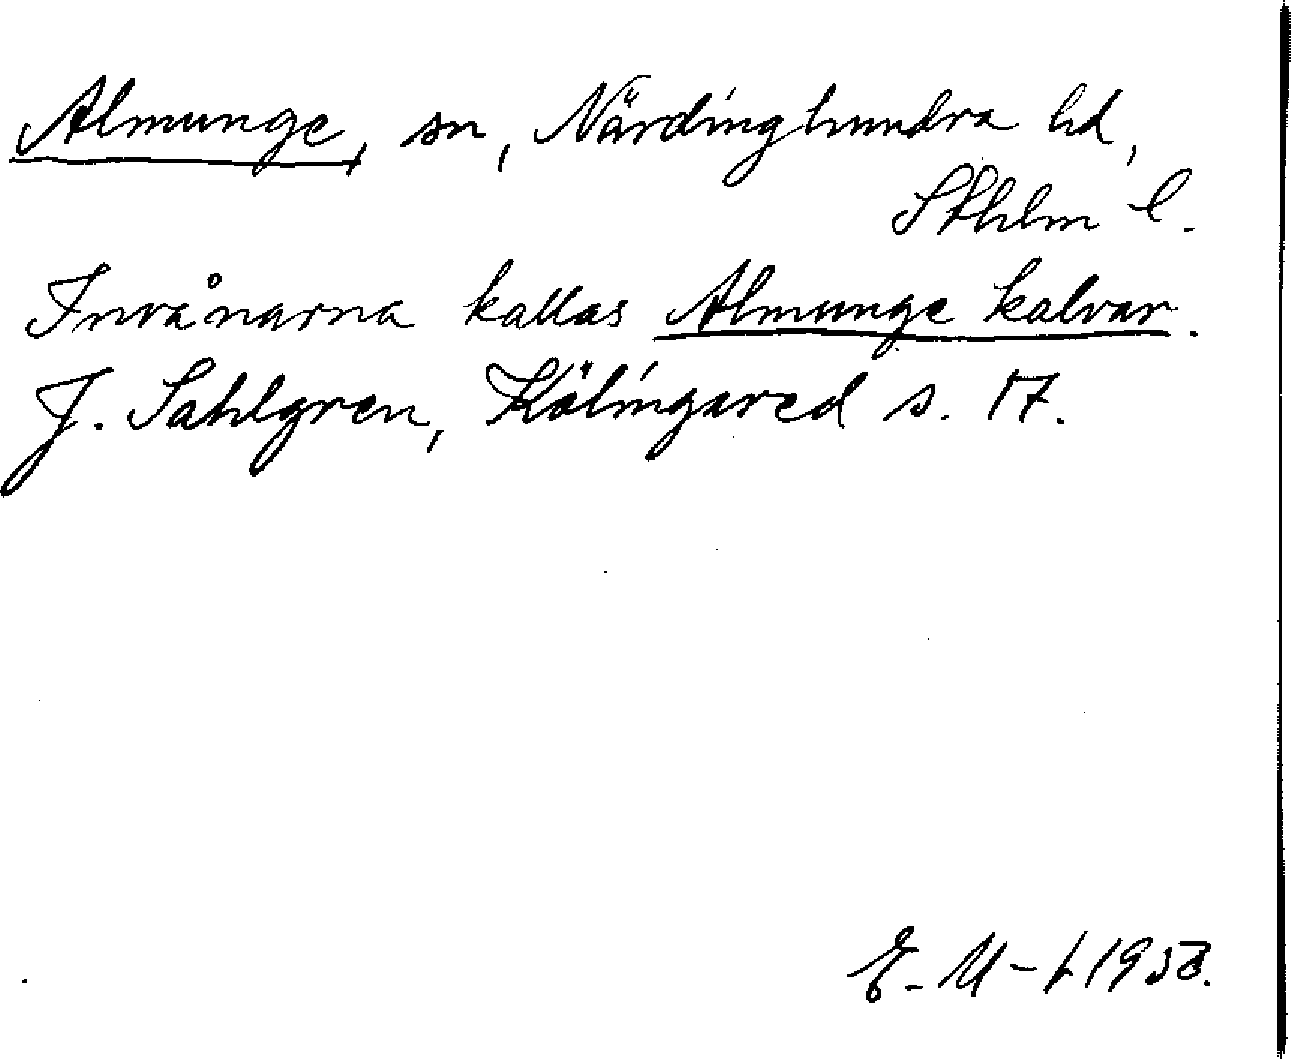 Almunge, sn, Närdinghundra hd,
Sthlm l.
Invånarna kallas Almunge kalvar.
J. Sahlgren, Kölingared s. 17.
E. M-t 1953.